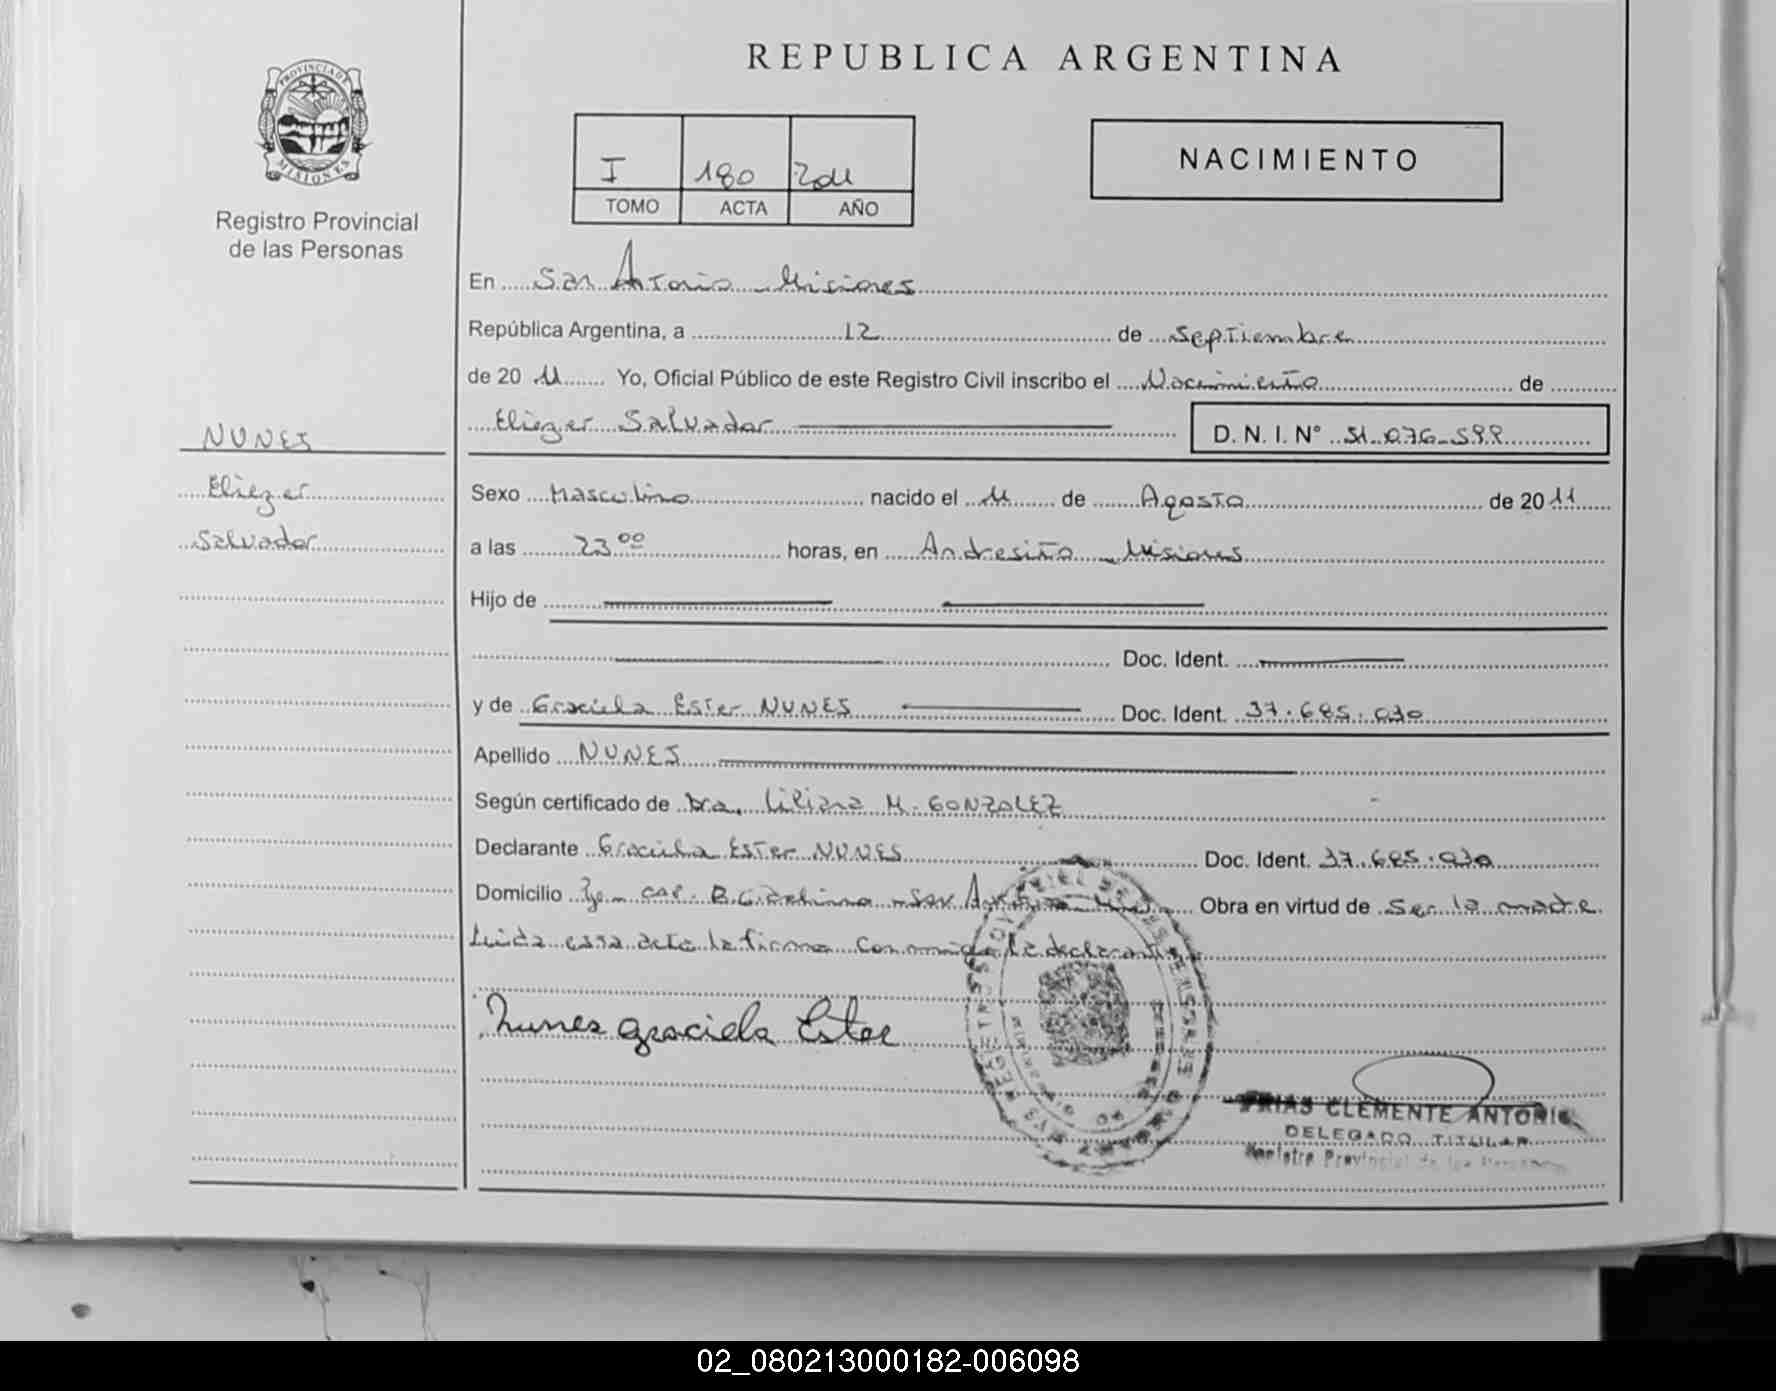 PROVINCIA DE
MISIONES
Registro Provincial
de las Personas
REPUBLICA ARGENTINA
I 180 2011
TOMO ACTA AÑO
NACIMIENTO
En San Antonio - Misiones
República Argentina, a 12 de Septiembre
de 20 11 Yo, Oficial Público de este Registro Civil inscribo el Nacimiento de
Eliezer Salvador D. N. I. N° 51.076-599
NUNES
Eliezer
Salvador
Sexo Masculino nacido el 11 de Agosto de 20 11
a las 23 00 horas, en Andresito - Misiones
Hijo de
Doc. Ident.
y de Graciela Ester NUNES Doc. Ident. 37.685.030
Apellido NUNES
Según certificado de Dra. Liliana M. GONZALEZ
Declarante Graciela Ester NUNES Doc. Ident. 37.685.030
Domicilio San Obra en virtud de Ser la madre.
Leida esta acta la firma conmigo la declarante
Nunes graciela Ester
FRIAS CLEMENTE ANTONIO
DELEGADO TITULAR
Registro Provincial de las Personas
02_080213000182-006098